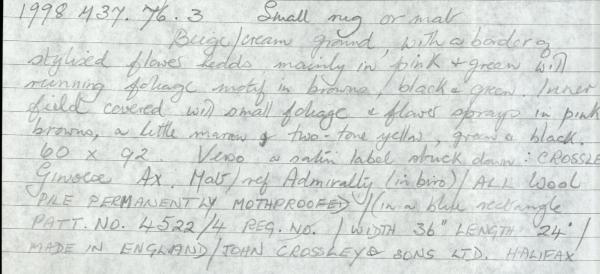 1998 H37. 76. 3 Small rug or mat
Beige/cream ground, with a border of
stylized flower heads mainly in pink & green with
running foliage motif in browns, black & green. Inner
field covered with small foliage & flower sprays in pink
browns, a little maroon & two-tone yellow, green & black.
60 x 92. Verso a satin label stuck down: CROSSLE
Ax. Mat/ref Admiralty (in biro)/ALL Wool
PILE PERMANENTLY MOTHPROOFED/(in a blue rectangle
PATT. NO. 4522/4 REG. NO. / WIDTH 36" LENGTH 24"/
MADE IN ENGLAND/JOHN CROSSLEY & SONS LTD. HALIFAX